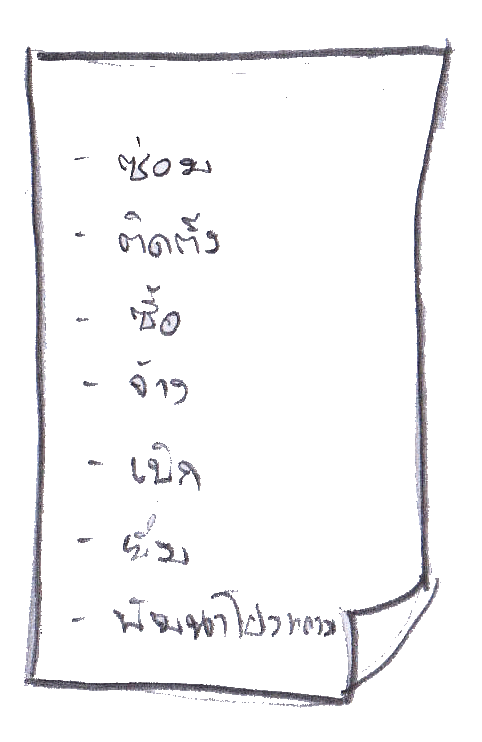 - ซ่อม
- ติดตั้ง
- ซื้อ
- จ้าง
- เบิก
- ยืม
- พัฒนาโปรแกรม